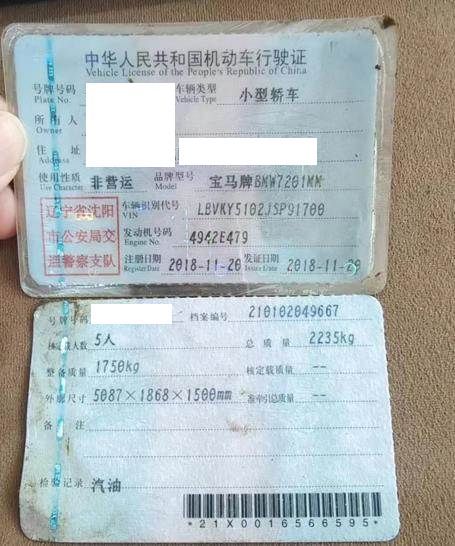 中华人民共和国机动车行驶证
Vehicle License of the People's Republic of China
号牌号码 车辆类型 小型轿车
Plate No. Vehicle Type
所有人
Owner
住 址
Address
使用性质 非营运 品牌型号 宝马牌BMW7201MM
Use Character Model
辽宁省沈阳 车辆识别代号 LBVKY5102JSP91700
VIN
市公安局交 发动机号码 4942E479
Engine No.
通警察支队 注册日期 2018-11-20 发证日期 2018-11-20
Register Date Issue Date
号牌号码 档案编号 210102049667
核定载人数 5人 总质量 2235kg
整备质量 1750kg 核定载质量 --
外廓尺寸 5087×1868×1500mm 准牵引总质量 --
备 注
检验记录 汽油
*21X0016566595*